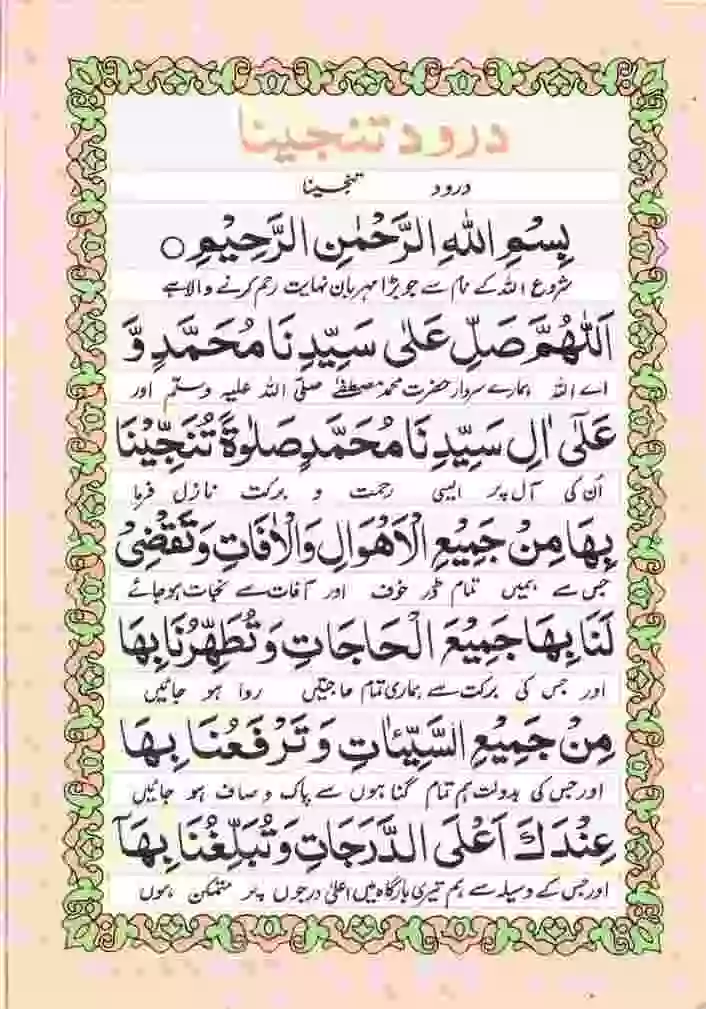 درود تنجینا
درود تنجینا
بِسْمِ اللهِ الرَّحْمٰنِ الرَّحِیْمِ ○
شروع اللہ کے نام سے جو بڑا مہربان نہایت رحم کرنے والا ہے
اَللّٰهُمَّ صَلِّ عَلٰى سَیِّدِنَا مُحَمَّدٍ وَّ
اے اللہ ہمارے سردار حضرت محمد مصطفےٰ صلی اللہ علیہ وسلم اور
عَلٰٓى اٰلِ سَیِّدِنَا مُحَمَّدٍ صَلٰوةً تُنَجِّیْنَا
اُن کی آل پر ایسی رحمت و برکت نازل فرما
بِهَا مِنْ جَمِیْعِ الْاَهْوَالِ وَالْاٰفَاتِ وَتَقْضِیْ
جس سے ہمیں تمام ڈر خوف اور آفات سے نجات ہو جائے
لَنَا بِهَا جَمِیْعَ الْحَاجَاتِ وَتُطَهِّرُنَا بِهَا
اور جس کی برکت سے ہماری تمام حاجتیں روا ہو جائیں
مِنْ جَمِیْعِ السَّیِّاٰتِ وَتَرْفَعُنَا بِهَا
اور جس کی بدولت ہم تمام گناہوں سے پاک و صاف ہو جائیں
عِنْدَكَ اَعْلَى الدَّرَجَاتِ وَتُبَلِّغُنَا بِهَآ
اور جس کے وسیلہ سے ہم تیری بارگاہ میں اعلیٰ درجوں پر متمکن ہوں